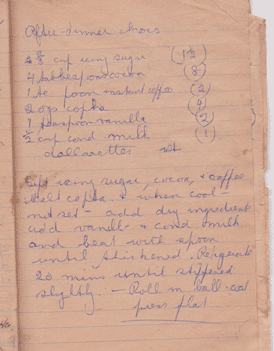 After-dinner chocs
2 2/3 cup icing sugar (1 1/3)
4 tablespoon cocoa (8)
1 te poon instant coffee (2)
2 ozs copha (4)
1 teaspoon vanilla (2)
1/2 cup cond milk (1)
salt
Sift icing sugar, cocoa, + coffee
melt copha + when cool
not set - add dry ingredient
add vanilla + cond milk
and beat with spoon
until thickened. Refrigerate
20 mins until stiffened
slightly. - Roll in ball-coat
press flat